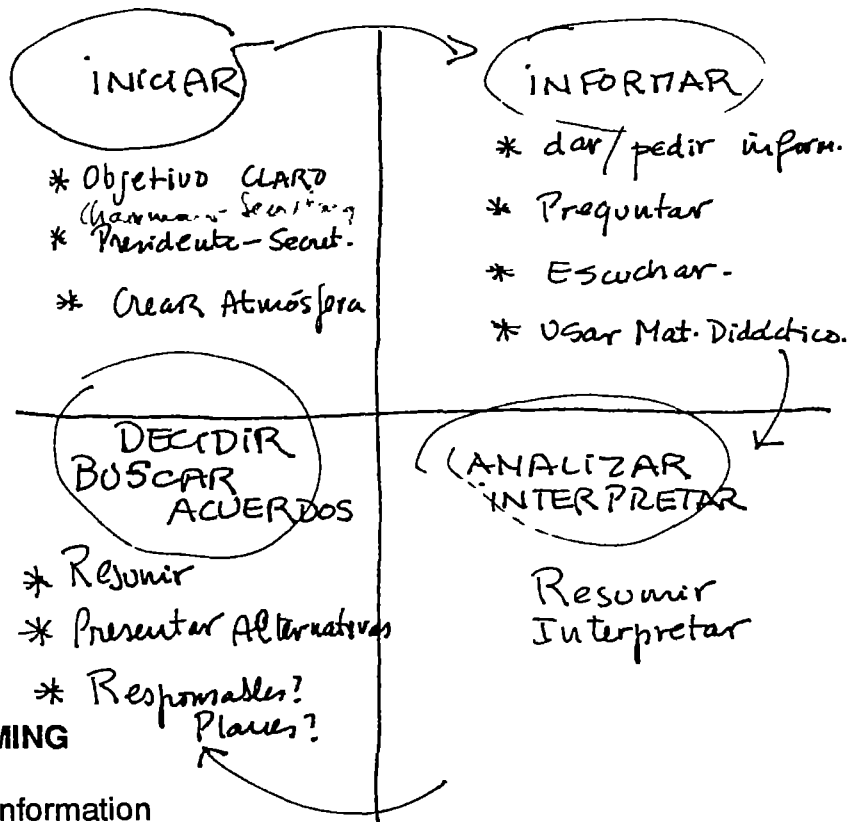 INICIAR
* Objetivo CLARO
Chairman -
* Presidente - Secret.
* Crear Atmósfera
INFORMAR
* dar/pedir inform.
* Preguntar
* Escuchar -
* Usar Mat. Didáctico.
DECIDIR
BUSCAR
ACUERDOS
* Resumir
* Presentar Alternativas
* Responsables?
Planes?
ANALIZAR
INTERPRETAR
Resumir
Interpretar
MING
nformation